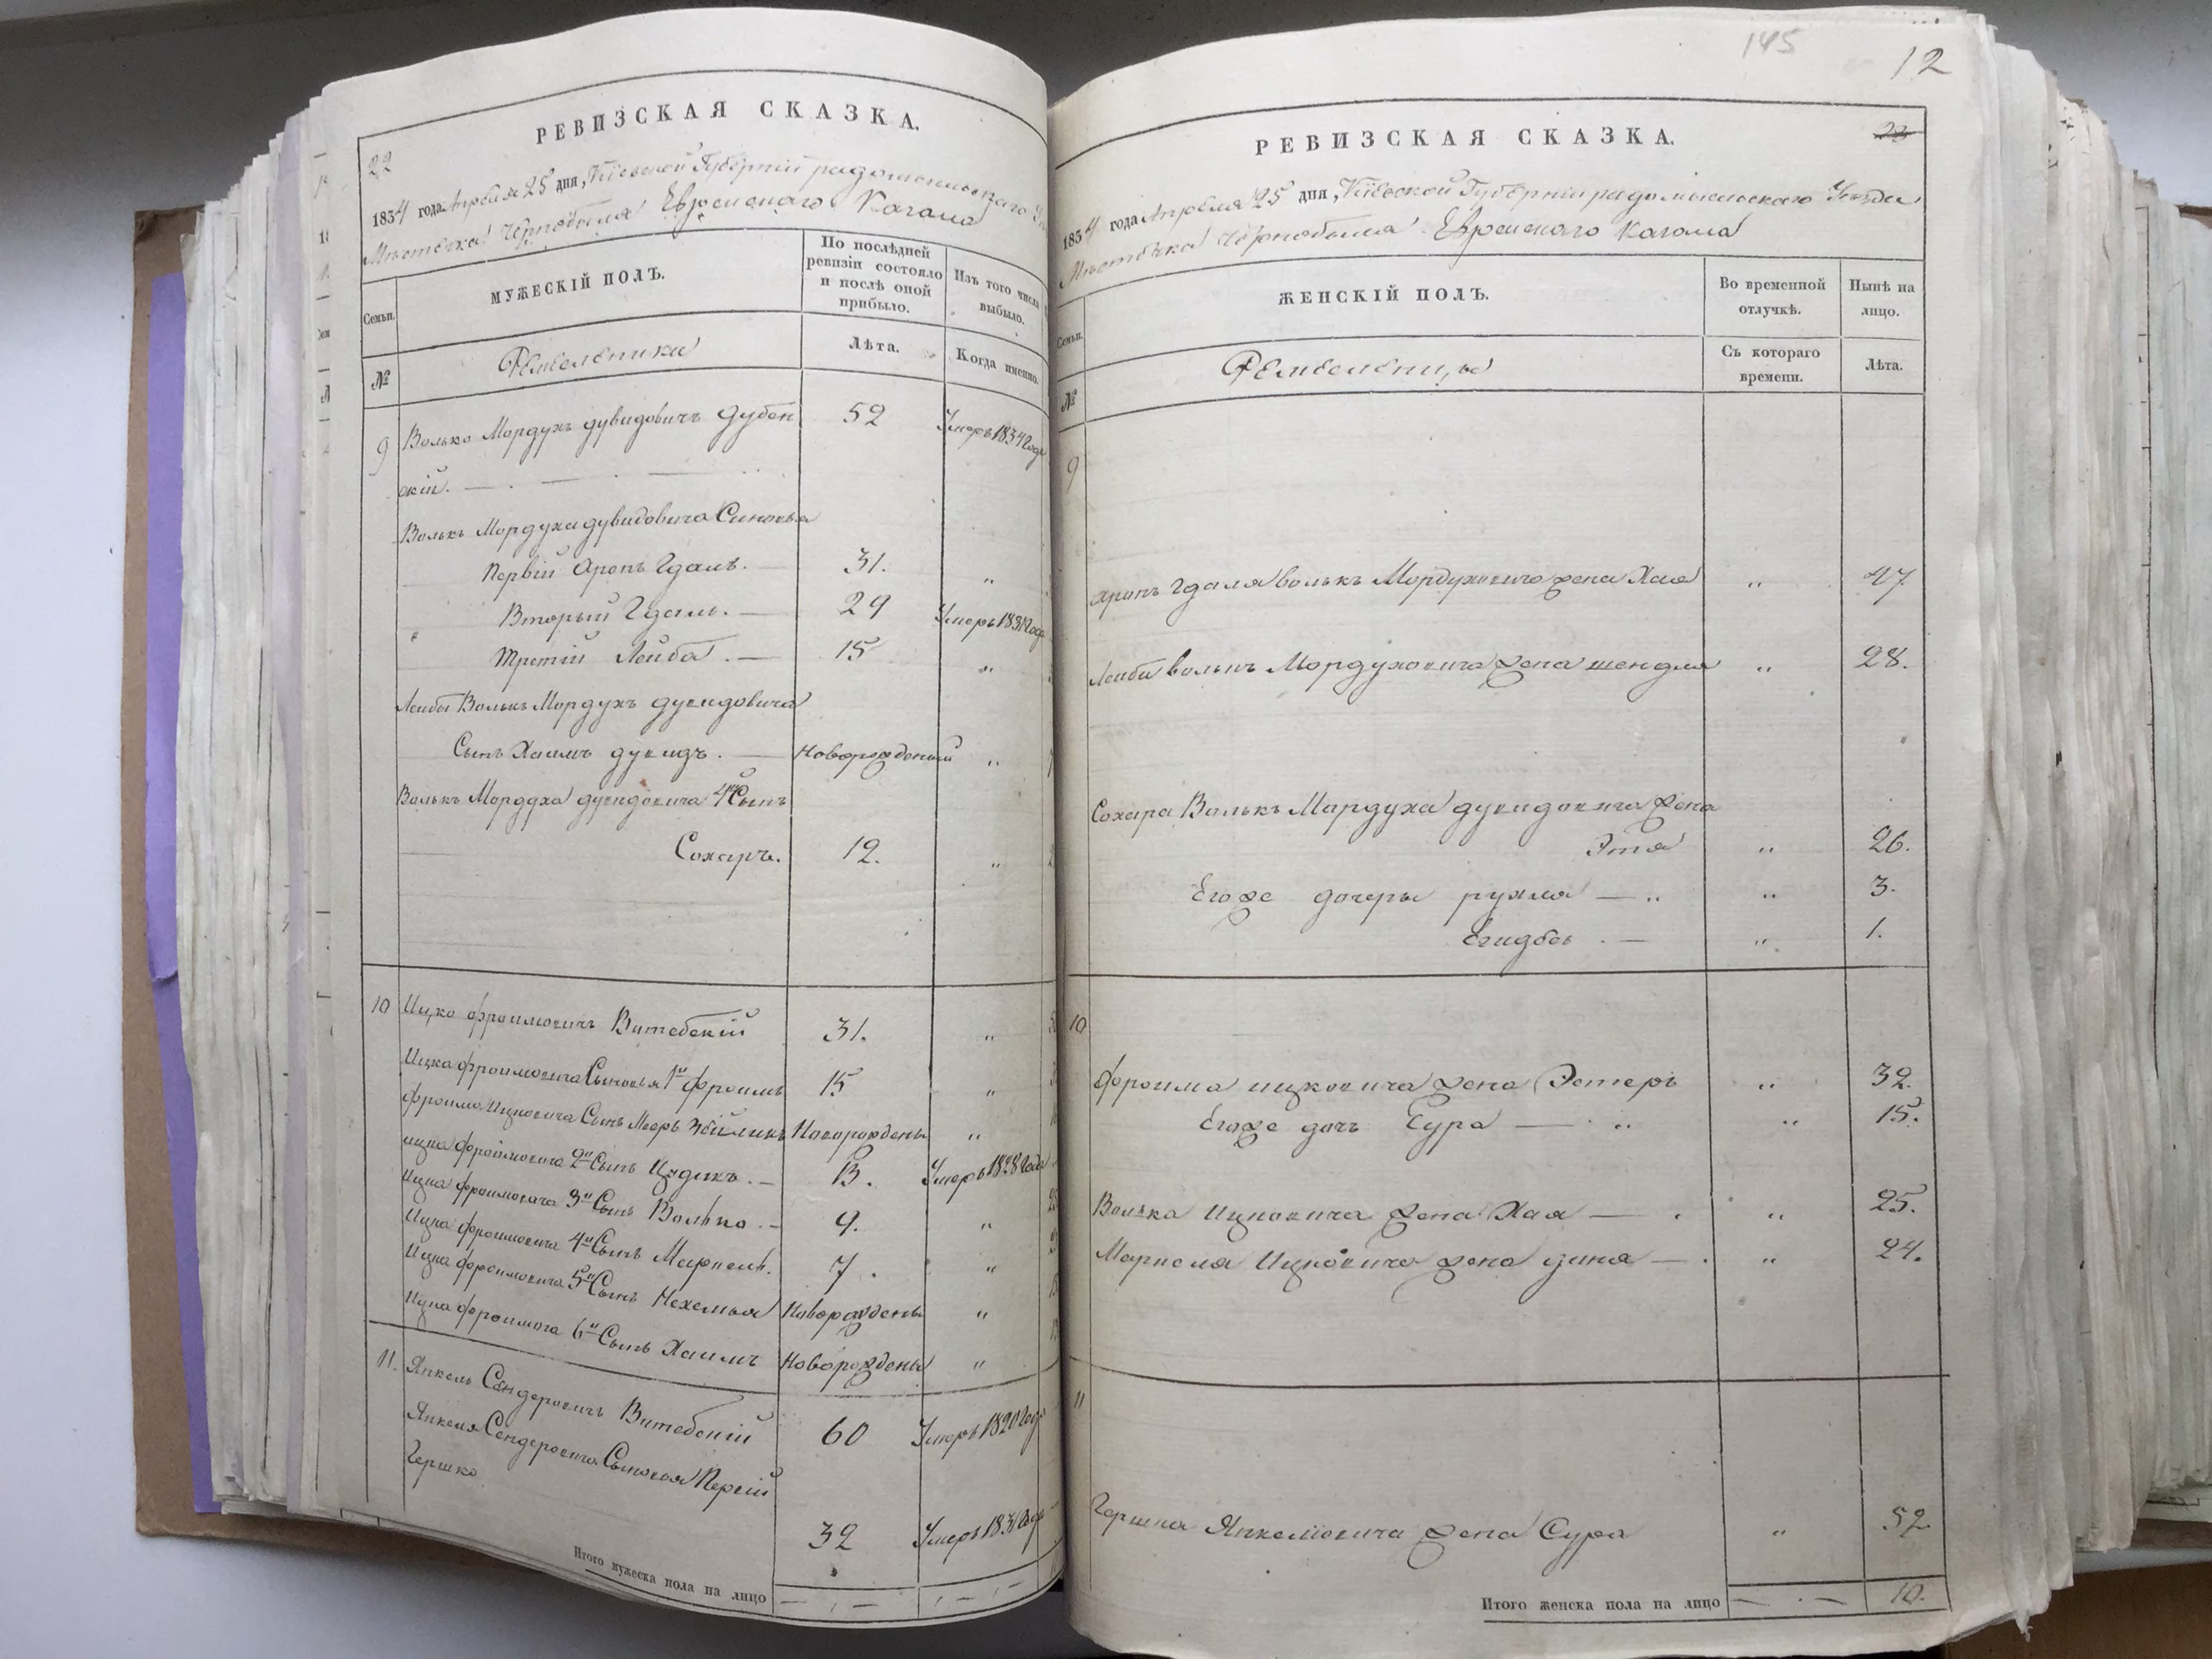 РЕВИЗСКАЯ СКАЗКА.
22
1834 года Апреля 25 дня, Кіевской Губерніи радомысльскаго
Мѣстечка Чернобыля Еврейскаго Кагала
Семьи.
МУЖЕСКІЙ ПОЛЪ.
По послѣдней ревизіи состояло и послѣ оной прибыло.
Изъ того числа выбыло.
№
Ремесленики
Лѣта.
Когда именно.
9 Волько Мордухъ дувидовичъ Дубен 52 Умеръ 1834 года
скій.
Волькъ Мордуха дувидовича Синовья
Первій Аронъ Гдаль. 31. „
Вторый Гдаль. 29 Умеръ 1831 года
Третій Лейба. 15 „
Лейбы Волькъ Мордухъ дувидовича
Сынъ Хаимъ дувидъ. Новорожденый „
Волькъ Мордуха дувидовича 4й Сынъ
Сохаръ. 12. „
10 Ицко фроимовичъ Витебскій 31. „
Ицка фроимовича Сыновья 1й фроимъ 15 „
фроима Ицковича Сынъ Мееръ Зейликъ Новорождены „
Ицка фроимовича 2й Сынъ Цодикъ. 13. Умеръ 1828 года
Ицка фроимовича 3й Сынъ Волько. 9. „
Ицка фроимовича 4й Сынъ Маркель. 7. „
Ицка фроимовича 5й Сынъ Нехемья Новорождены „
Ицка фроимова 6й Сынъ Хаимъ Новорождены „
11. Янкель Сендеровичъ Витебскій 60 Умеръ 1820 года
Янкеля Сендеровича Сыновья Первій
Гершко 32 Умеръ 1831 года
Итого мужеска пола на лицо
145
12
РЕВИЗСКАЯ СКАЗКА.
1834 года Апреля 25 дня, Кіевской Губерніи радомысльскаго Уѣзда
Мѣстечка Чернобыля Еврейскаго Кагала
Семьи.
ЖЕНСКІЙ ПОЛЪ.
Во временной отлучкѣ.
Нынѣ на лицо.
№
Ремесленицы
Съ котораго времени.
Лѣта.
9
Аронъ Гдаля волькъ Мордуховича жена Хая „ 47
Лейби волькъ Мордуховича жена шендля „ 28.
Сохара Волькъ Мордуха дувидовича жена
Этя „ 26.
Егоже дочеры рухля „ 3.
„ 1.
10
фроима ицковича жена Эстеръ „ 32.
Егоже дочь Сура „ 15.
Волька Ицковича жена Хая „ 25.
Маркеля Ицковича жена дина „ 24.
11
Гершка Янкелiовича жена Сура „ 52
Итого женска пола на лицо 10.